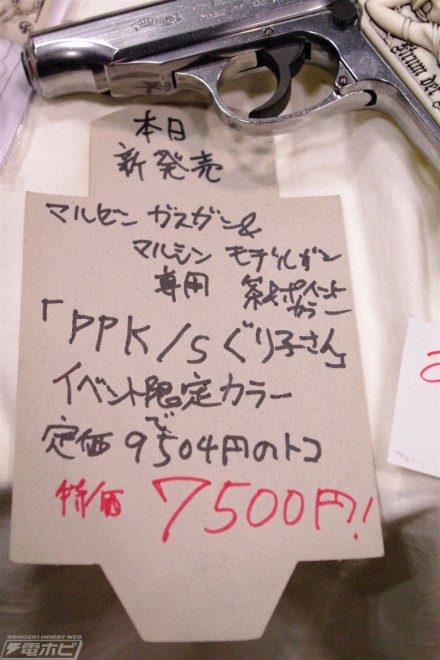 本日
新発売
マルゼン ガスガン&
マルシン モデルガン
専用
カラー
「PPK/sぐり子さん」
イベント限定カラー
で
定価9504円のトコ
特価 7500円!
DENGEKI HOBBY WEB
電ホビ